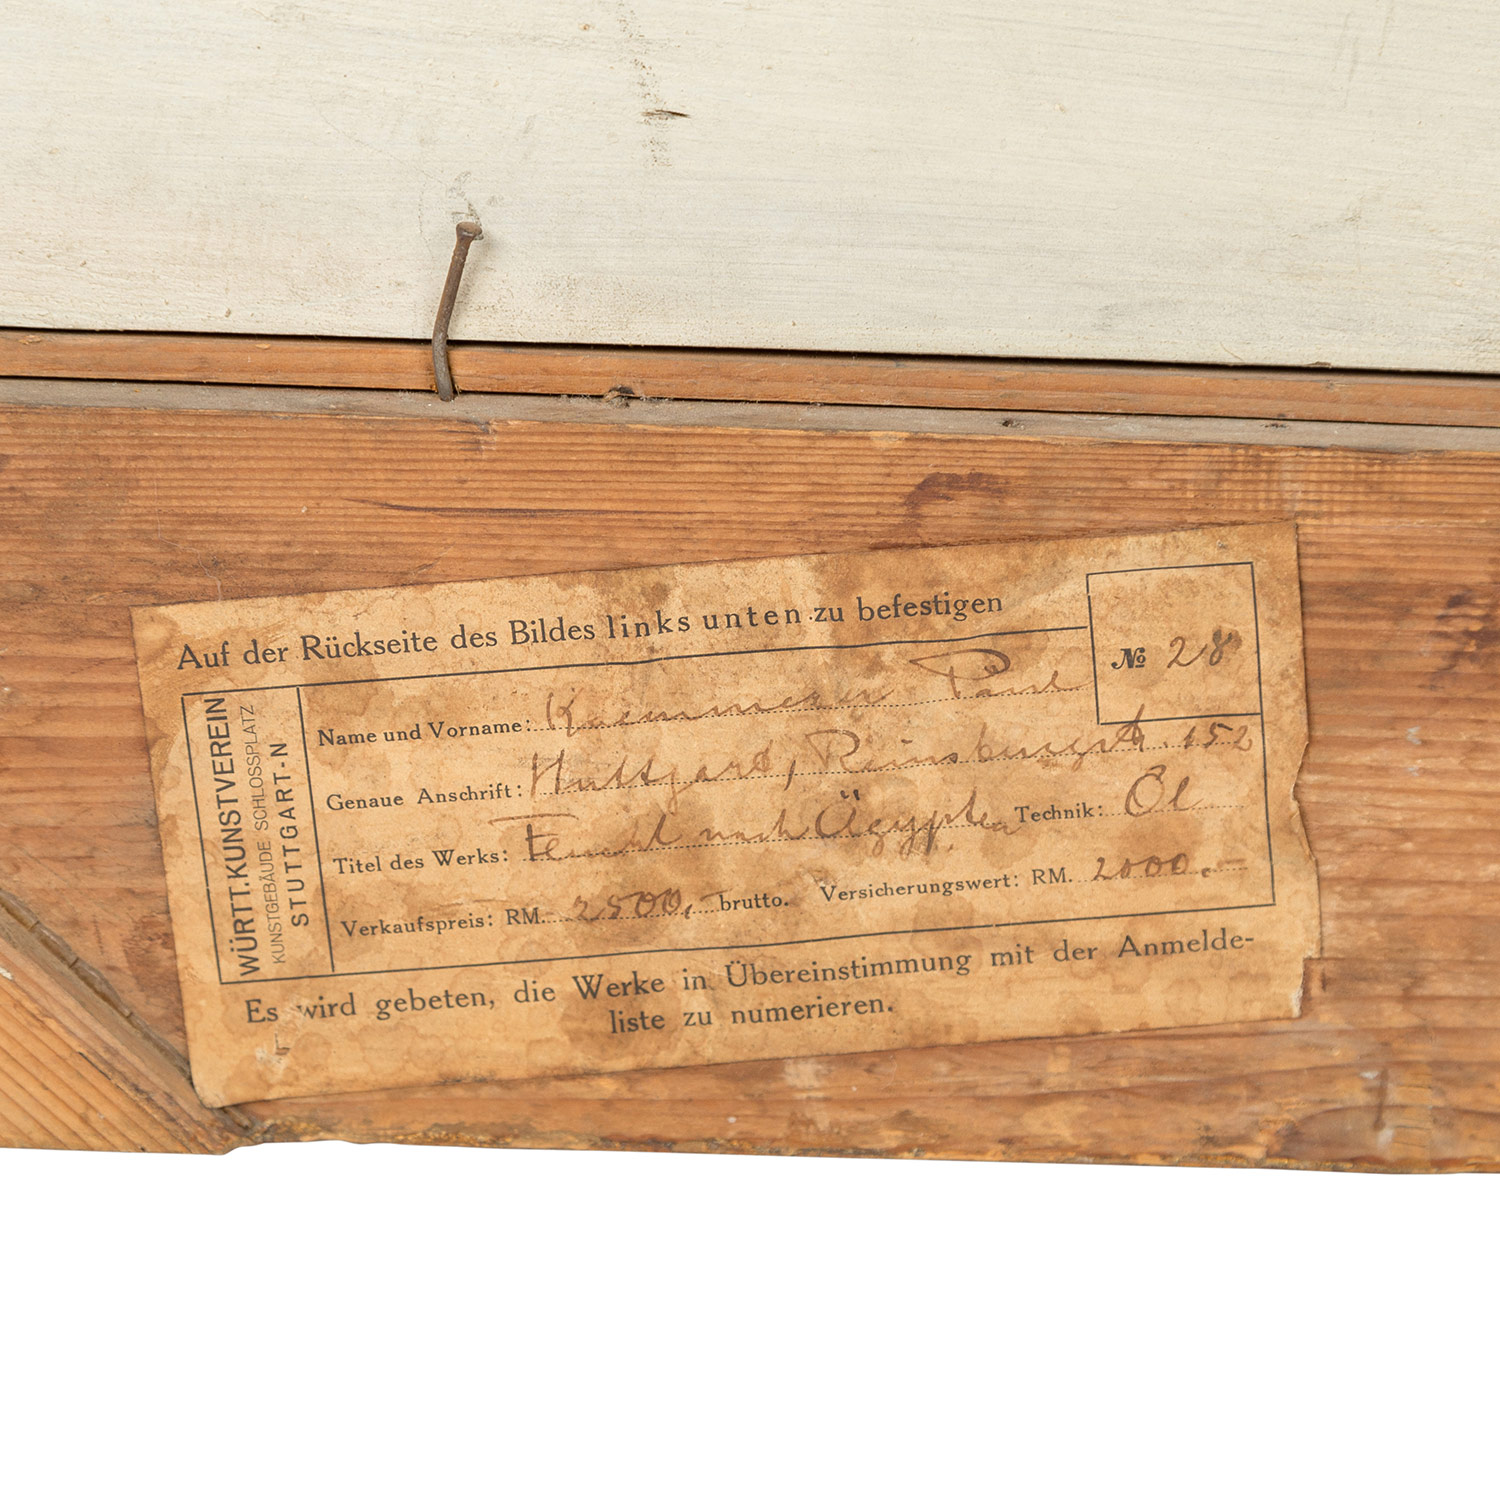 Auf der Rückseite des Bildes links unten zu befestigen
WÜRTT. KUNSTVEREIN
KUNSTGEBÄUDE SCHLOSSPLATZ
STUTTGART-N
№ 28
Name und Vorname: Kaemmerer Paul
Genaue Anschrift: Stuttgart, Reinsburgstr. 152
Titel des Werks: Flucht nach Ägypten Technik: Öl
Verkaufspreis: RM. 2500,- brutto. Versicherungswert: RM. 2000.-
Es wird gebeten, die Werke in Übereinstimmung mit der Anmelde-
liste zu numerieren.